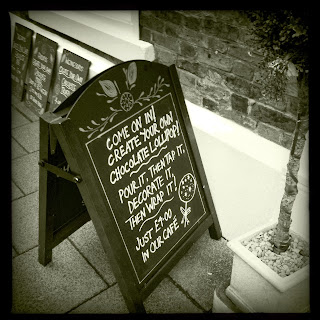 COME ON IN!
CREATE YOUR OWN
CHOCOLATE LOLLIPOP!
POUR IT, THEN TAP IT,
DECORATE IT,
THEN WRAP IT!
JUST £9.00
IN OUR CAFE